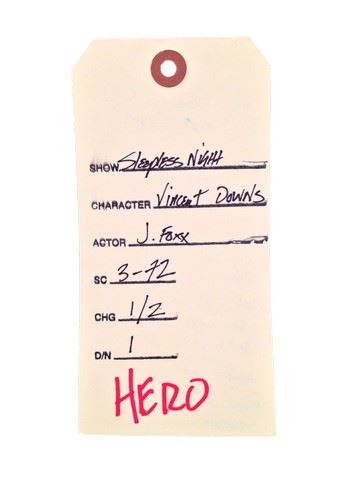 SHOW Sleepless Night
CHARACTER Vincent Downs
ACTOR J. Foxx
SC 3-72
CHG 1/2
D/N 1
HERO